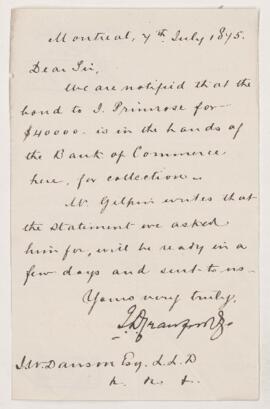 Montreal, 7th July 1875.
Dear Sir,
We are notified that the
bond to J. Primrose for
$40000. is in the hands of
the Bank of Commerce
here, for collection.
Mr. Gilpin writes that
the statement we asked
him for, will be ready in a
few days and sent to us.
Yours very truly,
J. D. Crawford &
J. W. Dawson Esq. L.L.D